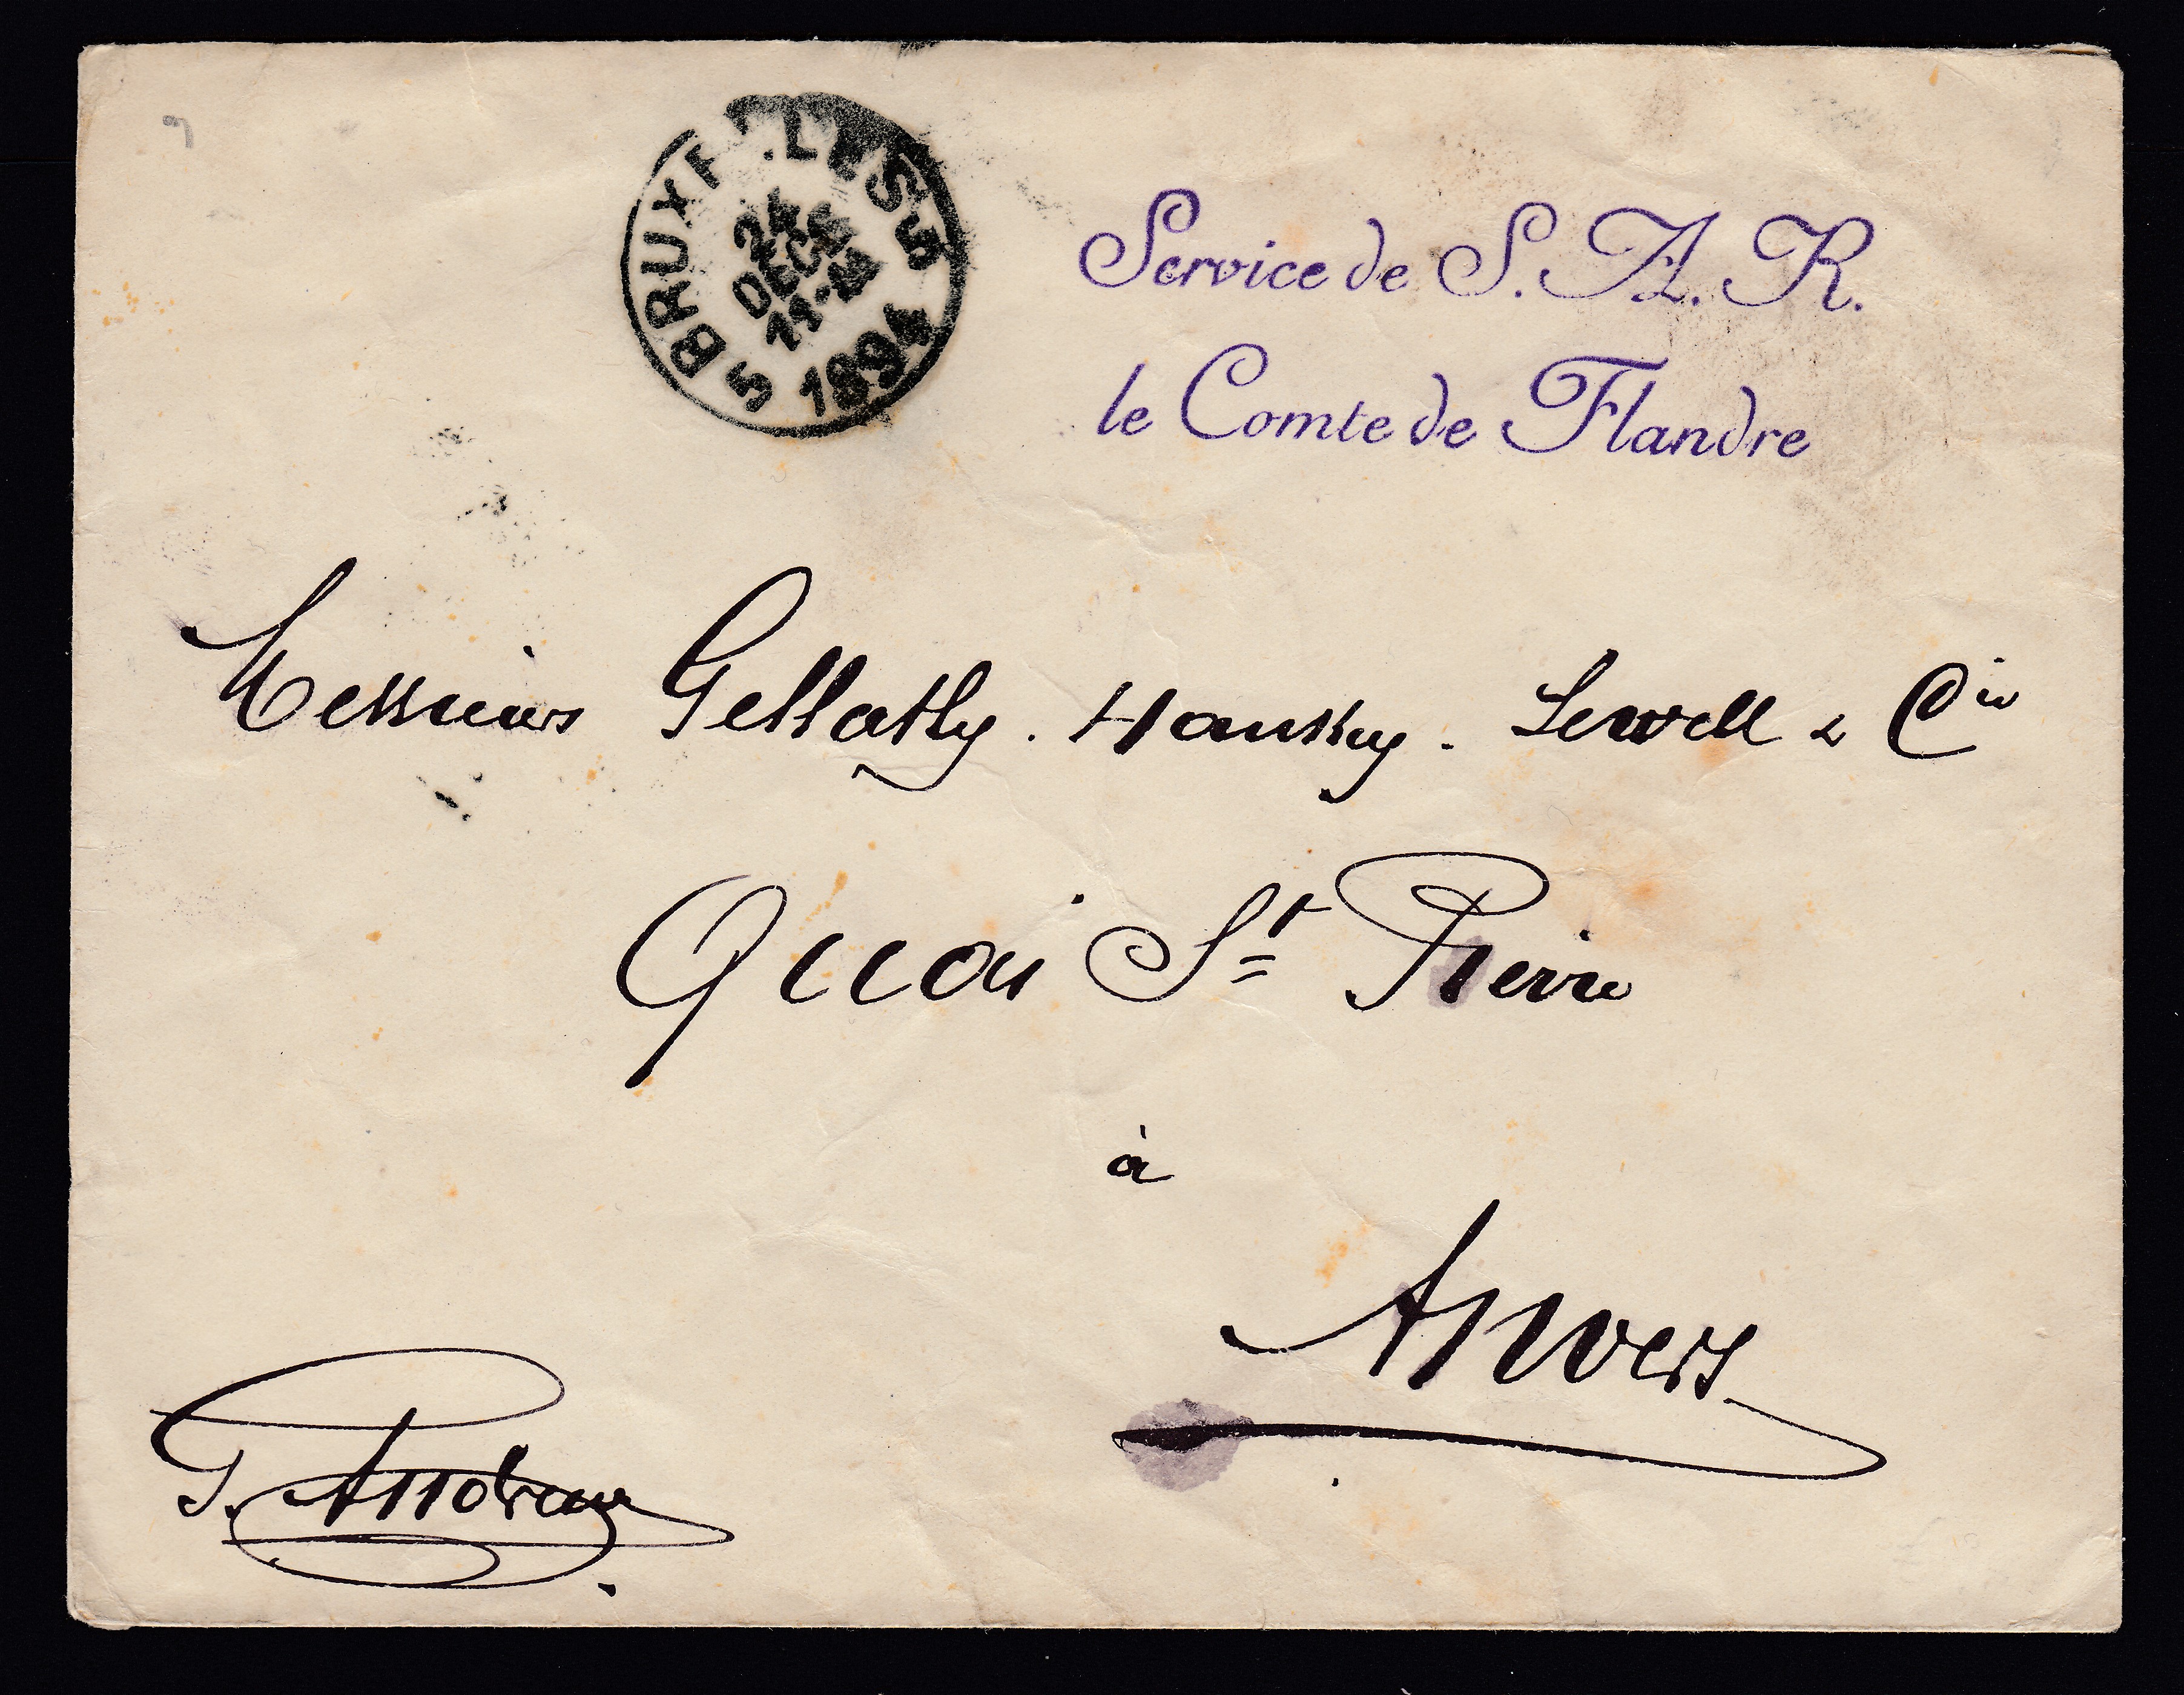 BRUXELLES 5
24
DECE
11-M
1894
5
Service de S. A. R.
le Comte de Flandre
Messieurs Gellatly. Hankey. Sewell & Cie
Quai St Pierre
à
Anvers
G.